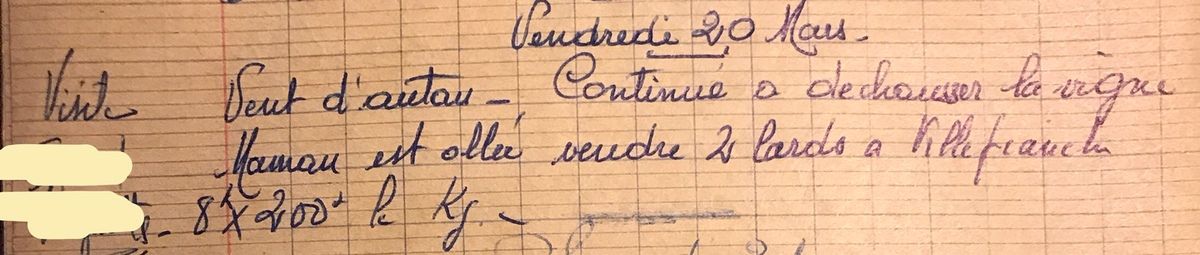 Vendredi 20 Mars.
Visite Vent d'autan - Continué a dechausser la vigne
Maman est allée vendre 2 lards a Villefranche
8k x 200f le Kg. -